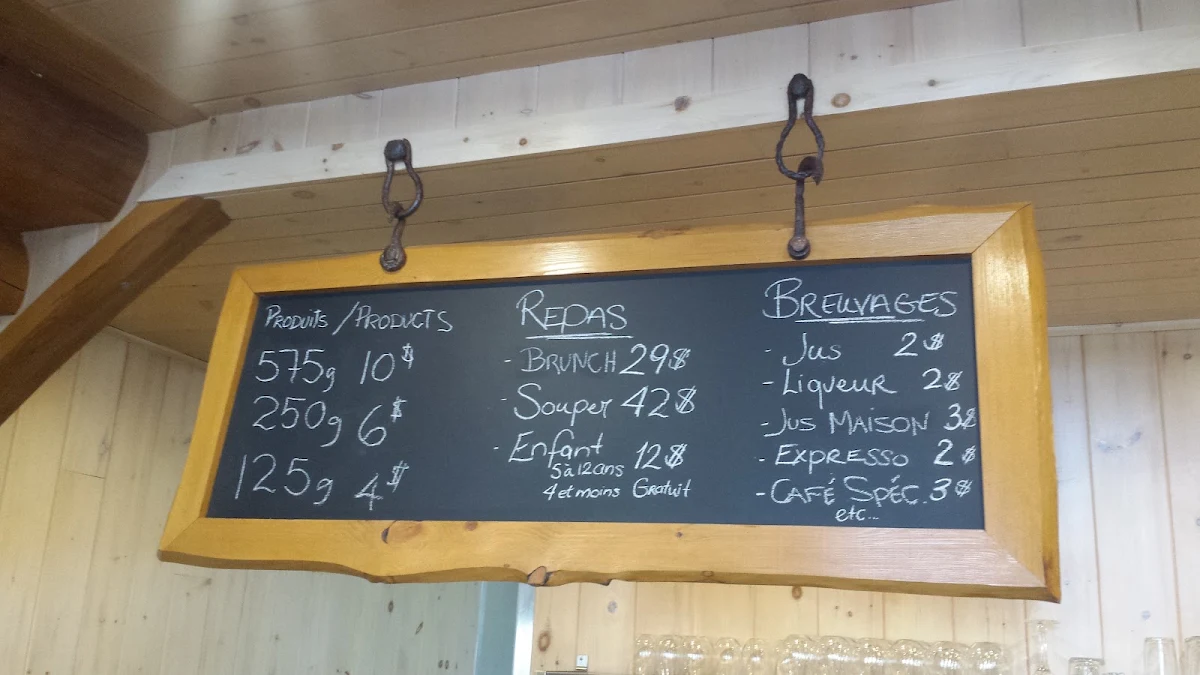 PRODUITS / PRODUCTS
575g 10$
250g 6$
125g 4$
REPAS
- BRUNCH 29$
- Souper 42$
- Enfant 12$
5 à 12 ans
4 et moins Gratuit
BREUVAGES
- Jus 2$
- Liqueur 2$
- Jus MAISON 3$
- EXPRESSO 2$
- CAFÉ SPÉC. 3$
etc...